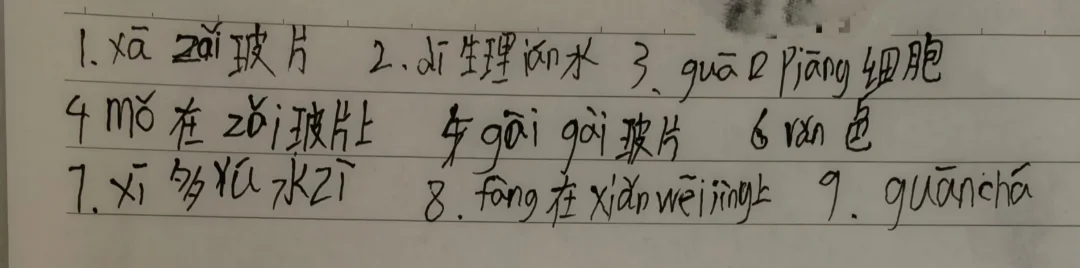 1. xā zǎi玻片 2. dī生理ián水 3、guā口piāng细胞
4 mǒ在zǎi玻片上 5 gāi gài玻片 6 rǎn色
7. xī多yú水zī 8. fàng在xiǎnwēijìng上 9. guānchá